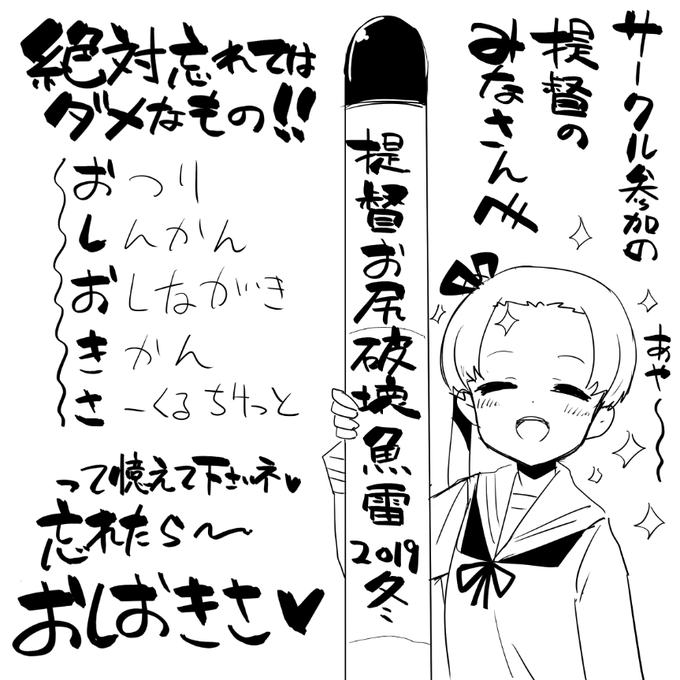 サークル参加の
提督の
みなさんへ
あや〜〜
提督お尻破壊魚雷2019冬
絶対忘れては
ダメなもの!!
おつり
しんかん
おしながき
きかん
さーくるちけっと
って憶えて下さいネ♥
忘れたら〜
おしおきさ♥